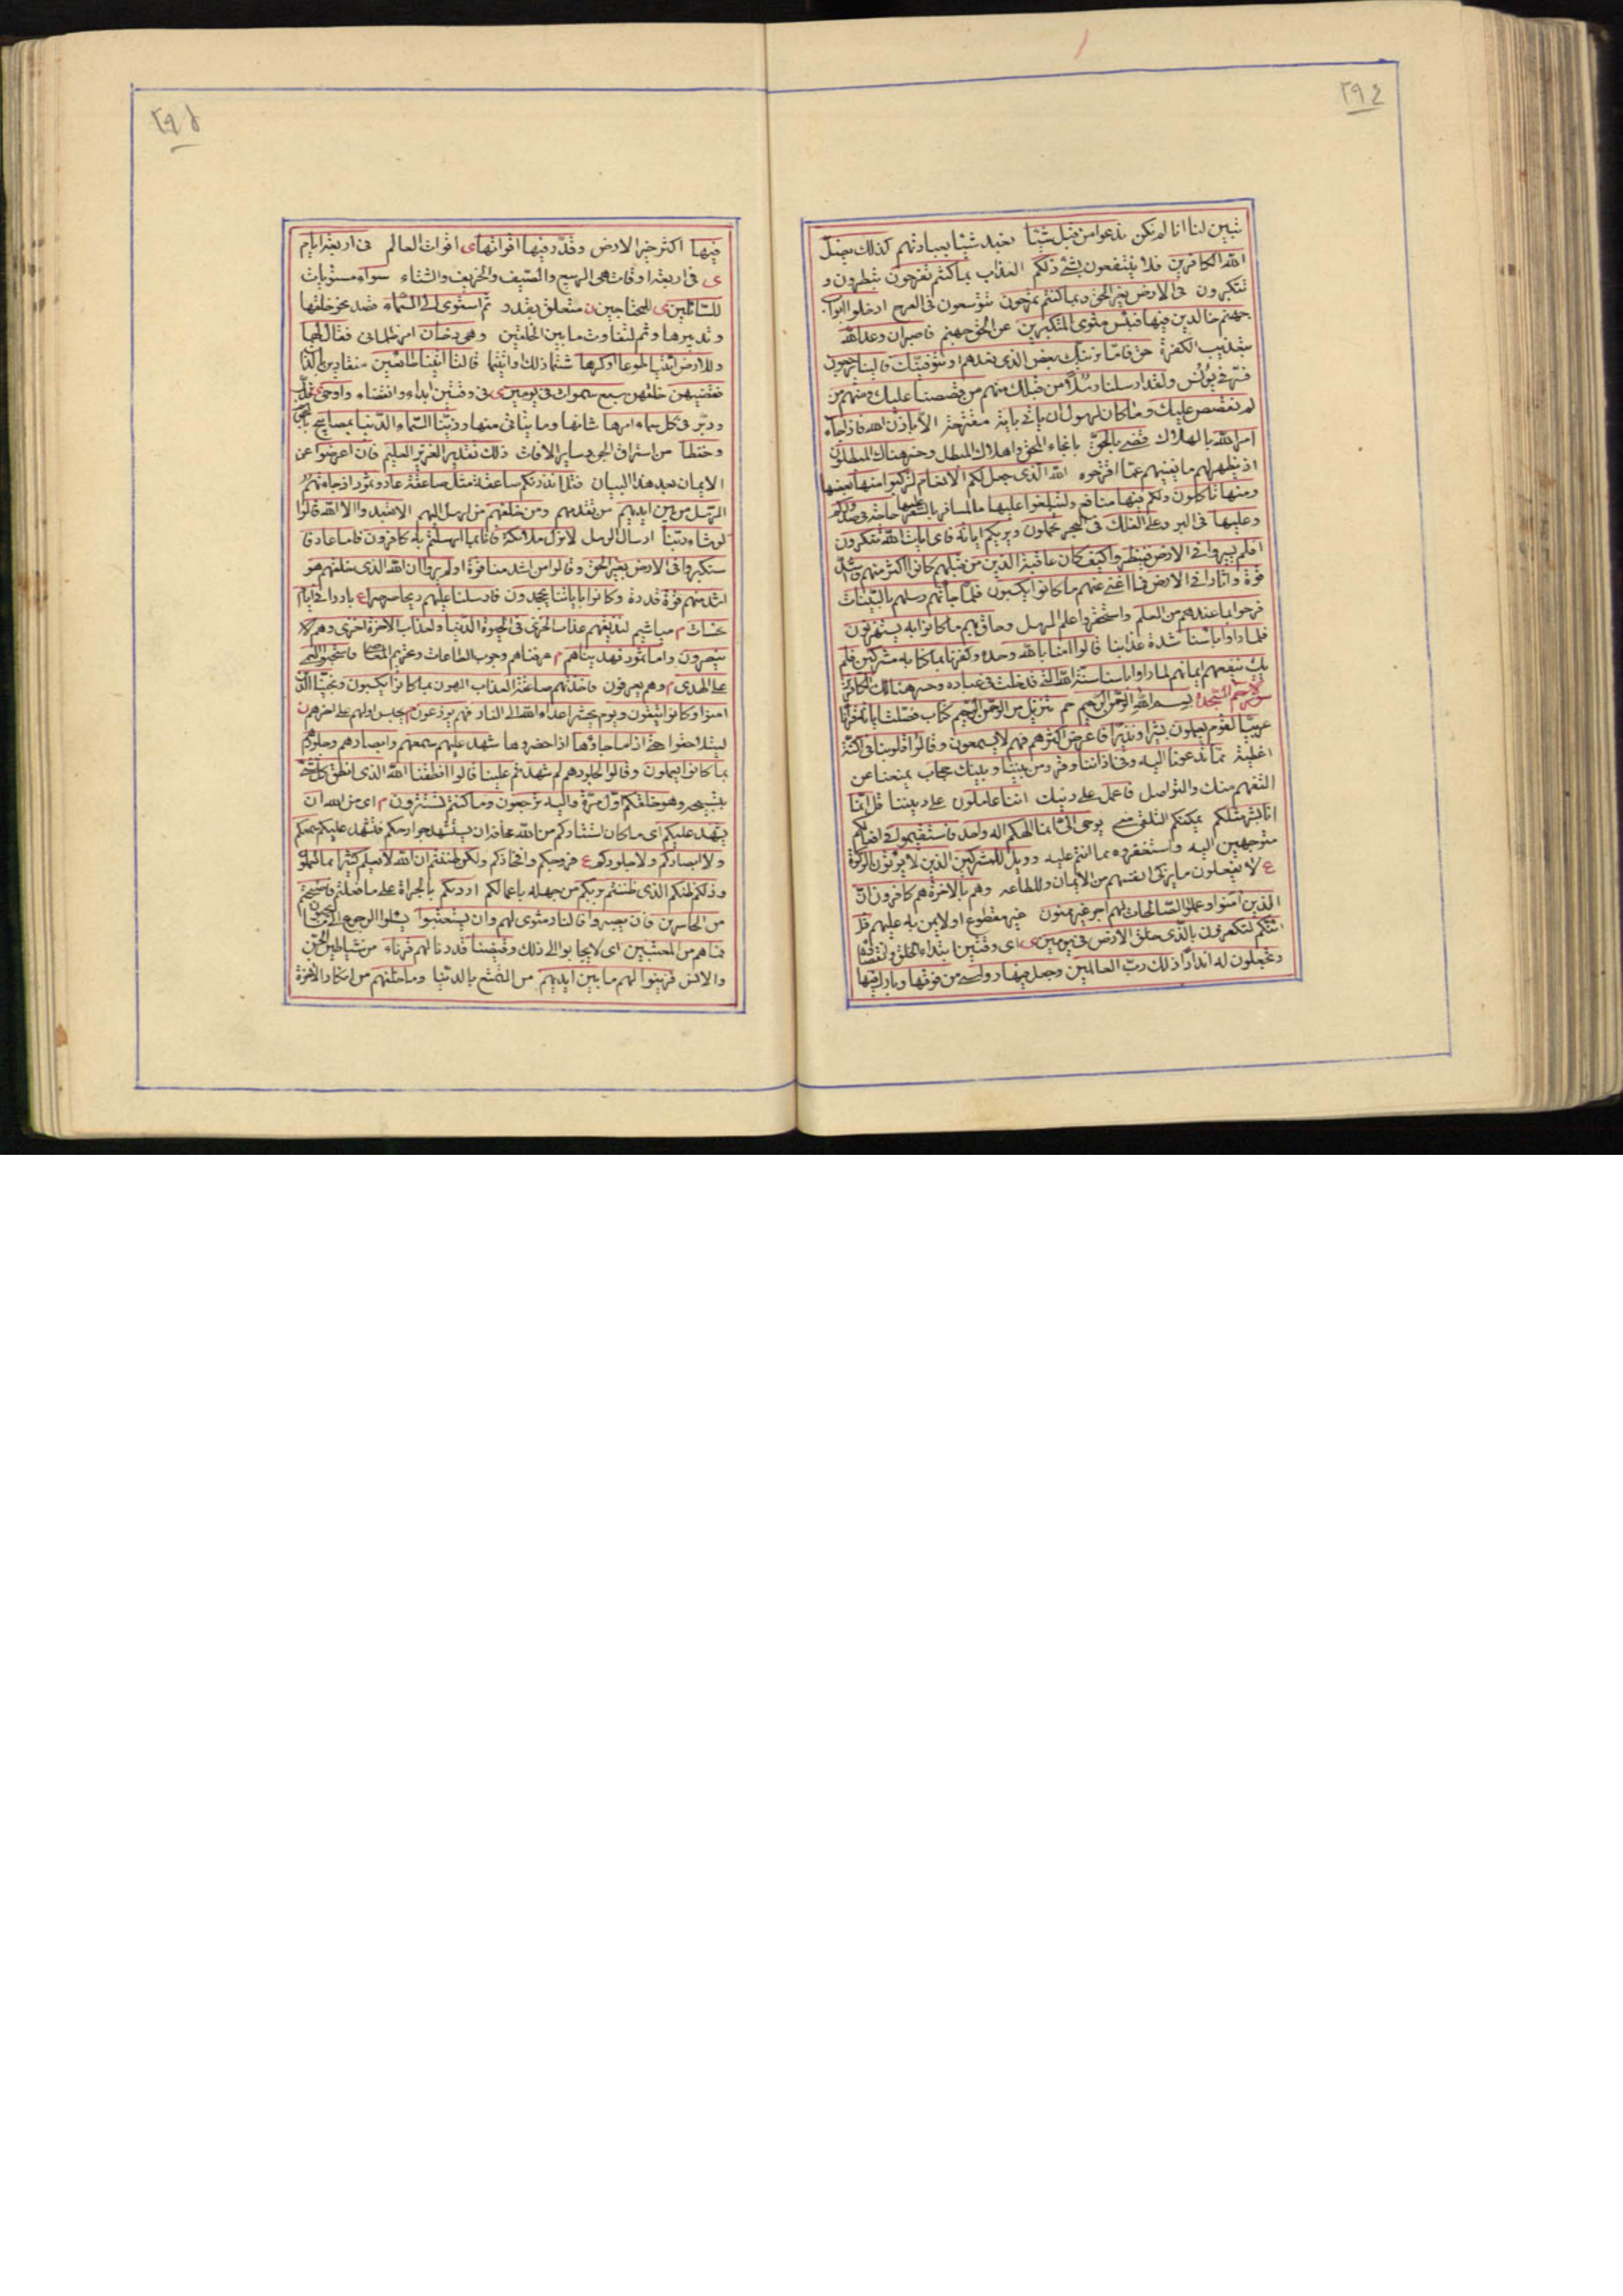 ٢٩٤
تبين لنا انا لم نكن ندعوا من قبل شيئا نعبد شيئا بعبادتهم كذلك يضل
الله الكافرين فلا ينتفعون بشئ ذلكم العذاب بما كنتم تفرحون تبطرون و
تتكبرون فى الارض بغير الحق وبما كنتم تمرحون تتوسعون فى الفرح ادخلوا ابواب
جهنم خالدين فيها فبئس مثوى المتكبرين عن الحق جهنم فاصبر ان وعد الله
بتعذيب الكفرة حق فاما نرينك بعض الذى نعدهم او نتوفينك فالينا يرجعون
ولقد ارسلنا رسلا من قبلك منهم من قصصنا عليك ومنهم من
لم نقصص عليك وما كان لرسول ان ياتى باية مقترحة الا باذن الله فاذا جاء
امر الله بالهلاك قضى بالحق بانجاء المحق واهلاك المبطل وخسر هنالك المبطلون
اذ يظهر لهم ما يغنيهم عما اقترحوه الله الذى جعل لكم الانعام لتركبوا منها بعضها
ومنها تاكلون ولكم فيها منافع ولتبلغوا عليها بالمسافرة عليها حاجة فى صدوركم
وعليها فى البر وعلى الفلك فى البحر تحملون ويريكم اياته فاى ايات الله تنكرون
افلم يسيروا فى الارض فينظروا كيف كان عاقبة الذين من قبلهم كانوا اكثر منهم واشد
قوة واثارا فى الارض فما اغنى عنهم ما كانوا يكسبون فلما جاءتهم رسلهم بالبينات
فرحوا بما عندهم من العلم واستحقروا علم الرسل وحاق بهم ما كانوا به يستهزئون
فلما راوا باسنا شدة عذابنا قالوا امنا بالله وحده وكفرنا بما كنا به مشركين فلم
يك ينفعهم ايمانهم لما راوا باسنا سنة الله التى قد خلت فى عباده وخسر هنالك الكافرون
سورة حم السجدة بسم الله الرحمن الرحيم حم تنزيل من الرحمن الرحيم كتاب فصلت اياته قرانا
عربيا لقوم يعلمون بشيرا ونذيرا فاعرض اكثرهم فهم لا يسمعون وقالوا قلوبنا فى اكنة
اغطية مما تدعونا اليه وفى اذاننا وقر ومن بيننا وبينك حجاب يمنعنا عن
التفهم منك والتواصل فاعمل على دينك اننا عاملون على ديننا قل انما
انا بشر مثلكم يمكنكم التلقى منى يوحى الى انما الهكم اله واحد فاستقيموا فى افعالكم
متوجهين اليه واستغفروه مما انتم عليه وويل للمشركين الذين لا يؤتون الزكوة
ع لا يفعلون ما يزكى انفسهم من الايمان والطاعه وهم بالاخرة هم كافرون ان
الذين امنوا وعملوا الصالحات لهم اجر غير ممنون غير مقطوع او لا يمن به عليهم قل
ائنكم لتكفرون بالذى خلق الارض فى يومين ى اى وقتين ابتداء الخلق وانقضائه
وتجعلون له اندادا ذلك رب العالمين وجعل فيها رواسى من فوقها وبارك فيها
٢٩٥
فيها اكثر خير الارض وقدر فيها اقواتها ى اقوات العالم فى اربعة ايام
ى فى اربعة اوقات هى الربيع والصيف والخريف والشتاء سواء مستويات
للسائلين ى للمحتاجين ن متعلق بقدر ثم استوى الى السماء قصد نحو خلقها
وتدبيرها وثم لتفاوت ما بين الخلقين وهى دخان امر ظلمانى فقال لها
وللارض ائتيا طوعا او كرها شئتما ذلك او ابيتما قالتا اتينا طائعين منقادين
فقضيهن خلقهن سبع سموات فى يومين ى فى وقتين ابداء وانقضاء واوحى قدر
ودبر فى كل سماء امرها شانها وما يتاتى منها وزينا السماء الدنيا بمصابيح
وحفظا من استراق الجن وساير الافات ذلك تقدير العزيز العليم فان اعرضوا عن
الايمان بعد هذا البيان فقل انذرتكم صاعقة مثل صاعقة عاد وثمود اذ جاءتهم
الرسل من بين ايديهم من تقدمهم ومن خلفهم من ارسل اليهم الا تعبدوا الا الله قالوا
لو شاء ربنا ارسال الرسل لانزل ملائكة فانا بما ارسلتم به كافرون فاما عاد فا
ستكبروا فى الارض بغير الحق وقالوا من اشد منا قوة اولم يروا ان الله الذى خلقهم هو
اشد منهم قوة قدرة وكانوا باياتنا يجحدون فارسلنا عليهم ريحا صرصرا ع باردا فى ايام
نحسات م مياشيم لنذيقهم عذاب الخزى فى الحيوة الدنيا ولعذاب الاخرة اخزى وهم لا
ينصرون واما ثمود فهديناهم م عرفناهم وجوب الطاعات وتحريم المعاصى فاستحبوا العمى
على الهدى م وهم يعرفون فاخذتهم صاعقة العذاب الهون بما كانوا يكسبون ونجينا الذين
امنوا وكانوا يتقون ويوم يحشر اعداء الله الى النار فهم يوزعون م يحبس اولهم على اخرهم ن
ليتلاحقوا حتى اذا ما جاؤها اذا حضروها شهد عليهم سمعهم وابصارهم وجلودهم
بما كانوا يعملون وقالوا لجلودهم لم شهدتم علينا قالوا انطقنا الله الذى انطق كل شئ
وهو خلقكم اول مرة واليه ترجعون وما كنتم تستترون م اى من الله ان
يشهد عليكم اى ما كان استتاركم من الله مخافة ان يستشهد جوارحكم فتشهد عليكم سمعكم
ولا ابصاركم ولا جلودكم ع فروجكم وافخاذكم ولكن ظننتم ان الله لا يعلم كثيرا مما تعملون
وذلكم ظنكم الذى ظننتم بربكم من جهله باعمالكم ارديكم بالجراة على ما فعلتم فاصبحتم
من الخاسرين فان يصبروا فالنار مثوى لهم وان يستعتبوا يسئلوا الرجوع الى
فما هم من المعتبين اى لا يجابوا الى ذلك وقيضنا قدرنا لهم قرناء من شياطين الجن
والانس فزينوا لهم ما بين ايديهم من التمتع بالدنيا وما خلفهم من انكار الاخرة